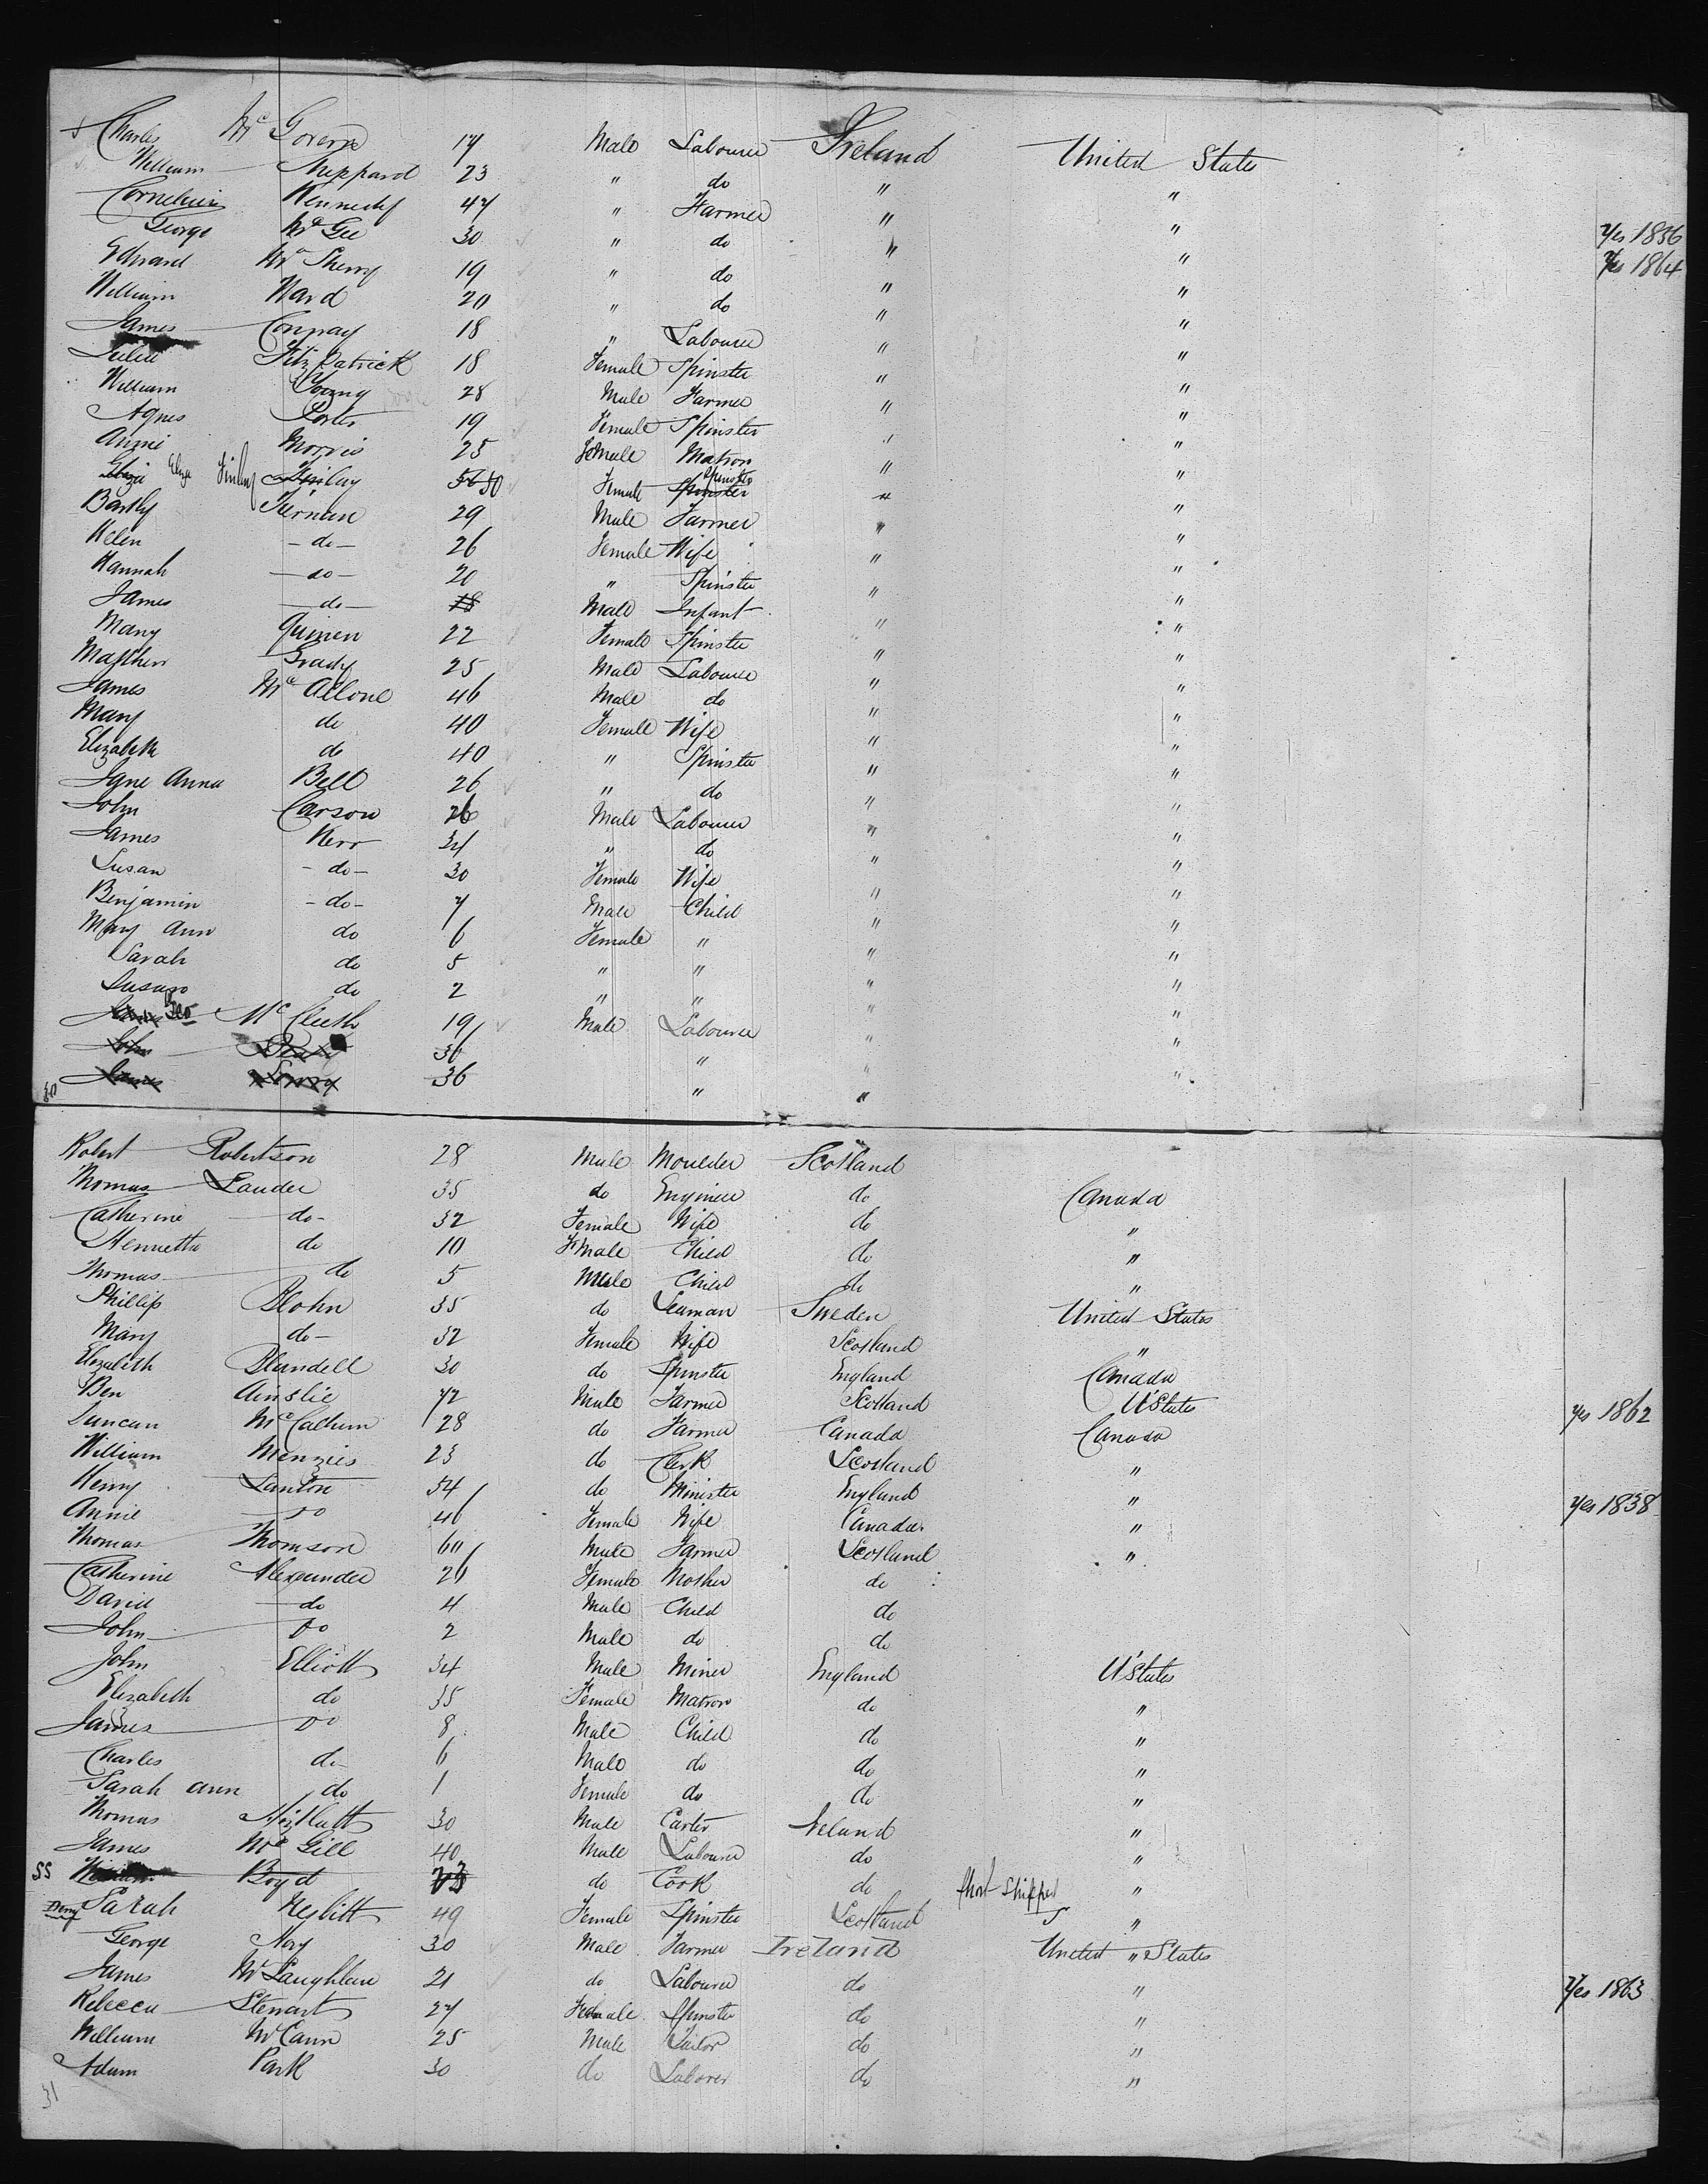 Charles Mc Govern 17 Male Labourer Ireland United States
William Sheppard 23 " do " "
Cornelius Kennedy 47 " Farmer " " Yes 1856
George Mc Gee 30 " do " " Yes 1864
Edward Mc Sherry 19 " do " "
William Ward 20 " do " "
James Conway 18 " Labourer " "
Julia Fitz Patrick 18 Female Spinster " "
William Young 28 Male Farmer " "
Agnes Porter 19 Female Spinster " "
Annie Morris 25 Female Matron " "
Eliza Eliza Finlay Finlay 56 50 Female Spinster Spinster " "
Bartly Tiernan 29 Male Farmer " "
Helen - do - 26 Female Wife " "
Hannah - do - 20 " Spinster " "
James - do - 18 Male Infant " "
Mary Quinen 22 Female Spinster " "
Matthew Grady 25 Male Labourer " "
James Mc Allone 46 Male do " "
Mary do 40 Female Wife " "
Elizabeth do 40 " Spinster " "
Jane Anna Bell 26 " do " "
John Carson 26 Male Labourer " "
James Kerr 34 " do " "
Susan - do - 30 Female Wife " "
Benjamin - do - 7 Male Child " "
Mary Ann do 6 Female " " "
Sarah do 5 " " " "
Susan do 2 " " " "
Geo Mc Clieth 19 Male Labourer " "
John 36 " " "
James 36 " "
30
Robert Robertson 28 Male Moulder Scotland
Thomas Lauder 35 do Engineer do Canada
Catherine - do - 32 Female Wife do "
Henrietta do 10 Female Child do "
Thomas do 5 Male Child do "
Phillip Blohn 35 do Seaman Sweden United States
Mary do - 32 Female Wife Scotland "
Elizabeth Blundell 30 do Spinster England Canada
Ben Ainslie 72 Male Farmer Scotland U'States yes 1862
Duncan Mc Callum 28 do Farmer Canada Canada
William Menzies 23 do Clerk Scotland "
Henry Lanton 54 do Minister England " yes 1838
Annie do 46 Female Wife Canada "
Thomas Thomson 60 Male Farmer Scotland "
Catherine Alexander 26 Female Mother do
David do 4 Male Child do
John do 2 Male do do
John Elliott 34 Male Miner England U'States
Elizabeth do 35 Female Matron do "
James do 8 Male Child do "
Charles do 6 Male do do "
Sarah ann do 1 Female do do "
Thomas 30 Male Carter Ireland "
James Mc Gill 40 Male Labourer do "
SS William Boyd 23 do Cook do Short Shipped "
Derry Sarah Nesbitt 49 Female Spinster Scotland "
George Noy 30 Male Farmer Ireland United " States
James Mc Laughlan 21 do Labourer do " Yes 1863
Rebecca Stewart 27 Female Spinster do "
William Mc Cann 25 Male Tailor do "
Adam Park 30 do Laborer do "
31